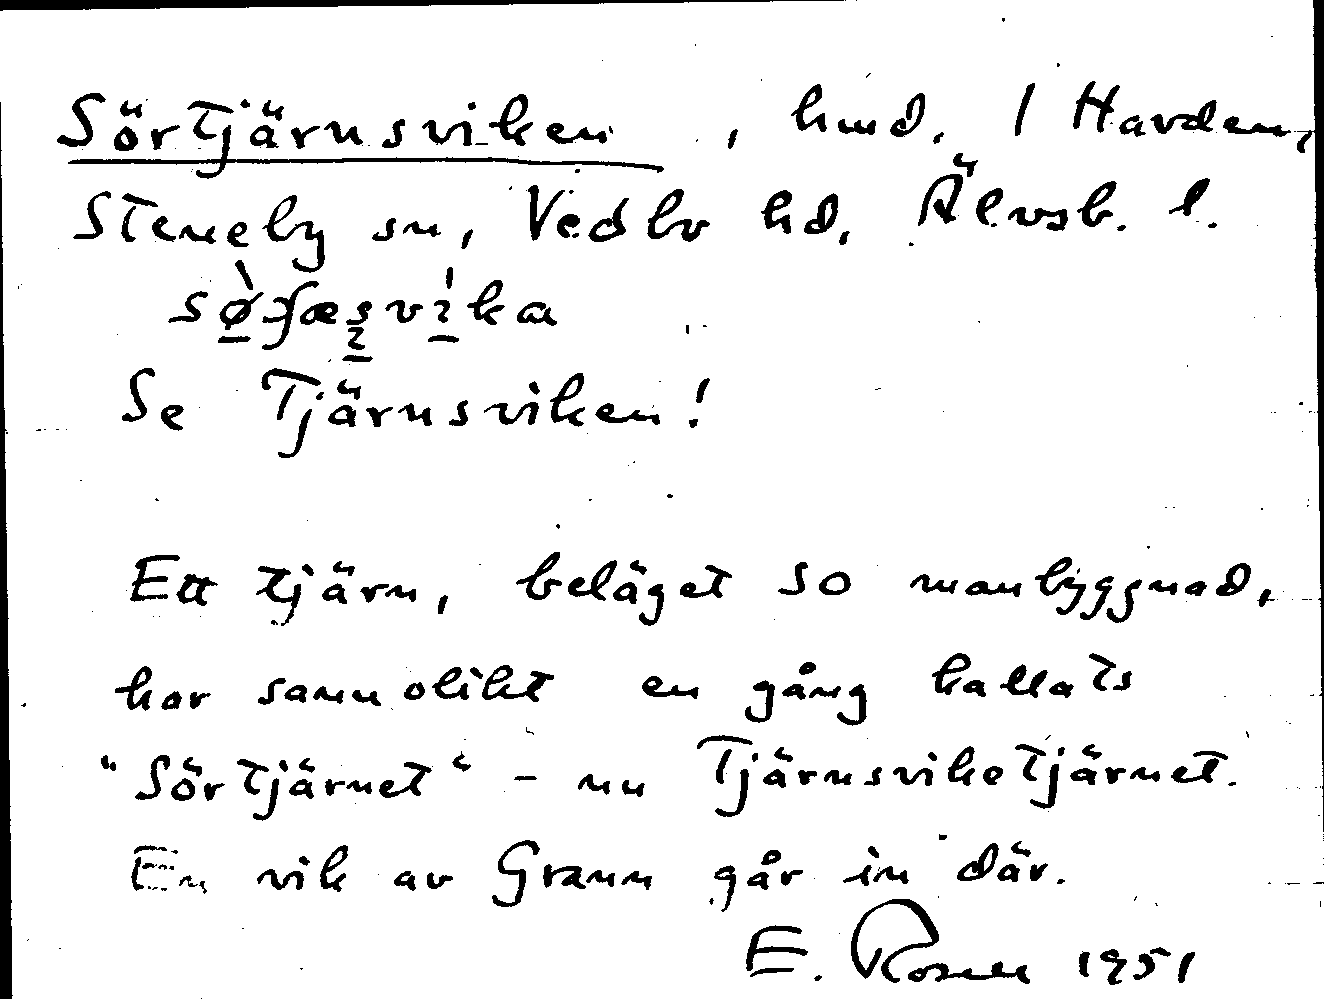 Sörtjärnsviken, hmd. / Havden,
Steneby sn, Vedbo hd, Älvsb. l.
Se Tjärnsviken!
Ett tjärn, beläget SO manbyggnad,
har sannolikt en gång kallats
"Sörtjärnet" - nu Tjärnsviketjärnet.
En vik av Grann går in där.
E. Rosell 1951